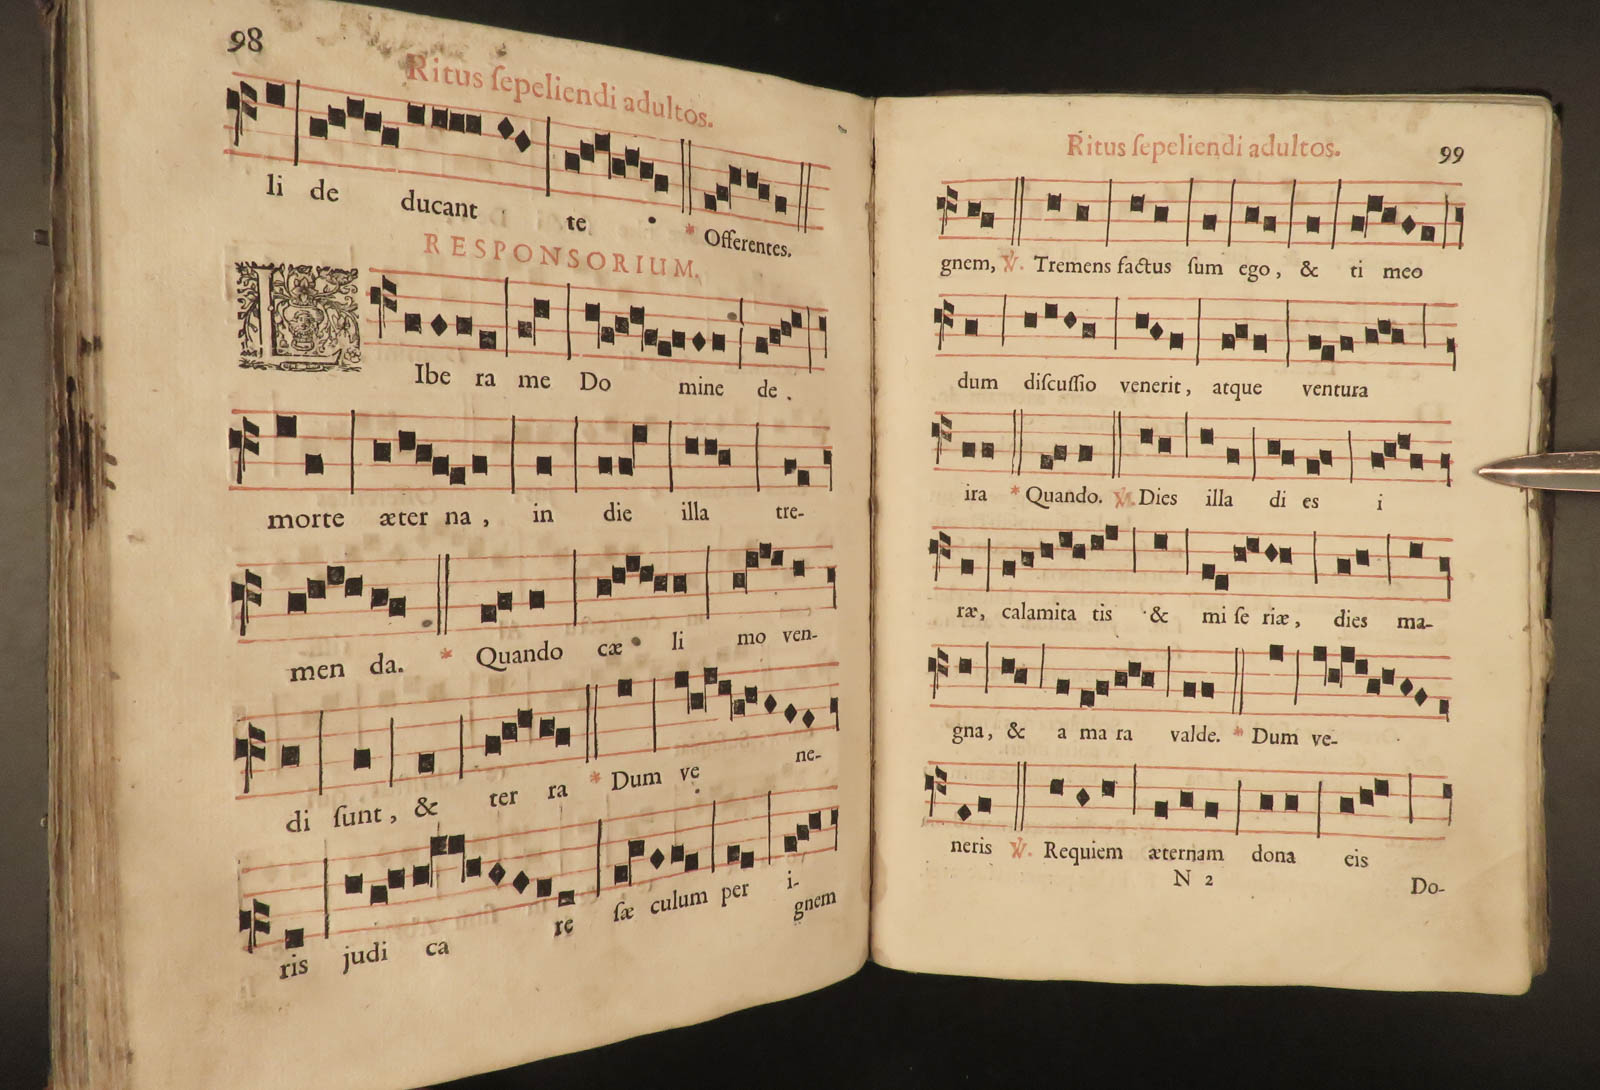 98
Ritus ſepeliendi adultos.
li de ducant te * Offerentes.
RESPONSORIUM.
LIbe ra me Do mine de.
morte æter na, in die illa tre-
men da. * Quando cæ li mo ven-
di ſunt, & ter ra * Dum ve ne-
ris judi ca re ſæ culum per i-
gnem
Ritus ſepeliendi adultos. 99
gnem, ℣. Tremens factus ſum ego, & ti meo
dum diſcuſſio venerit, atque ventura
ira * Quando. ℣. Dies illa di es i
ræ, calamita tis & mi ſe riæ, dies ma-
gna, & a ma ra valde. * Dum ve-
neris ℣. Requiem æternam dona eis
N 2
Do-